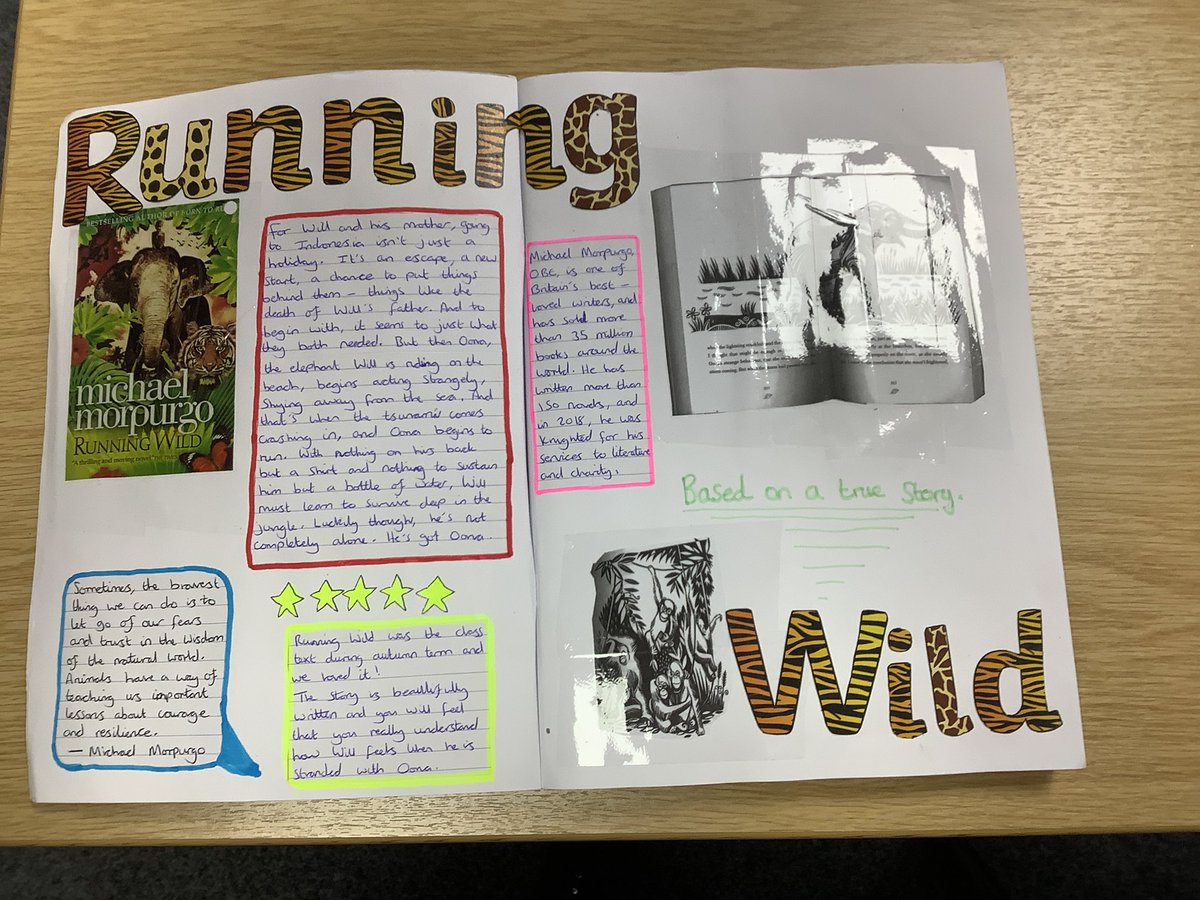 Running
BESTSELLING AUTHOR OF BORN TO RUN
michael
morpurgo
RUNNING WILD
"A thrilling and moving novel"
For Will and his mother, going
to Indonesia isn't just a
holiday. It's an escape, a new
start, a chance to put things
behind them - things like the
death of Will's father. And to
begin with, it seems to just what
they both needed. But then Oona,
the elephant Will is riding on the
beach, begins acting strangely,
shying away from the sea. And
that's when the tsunami comes
crashing in, and Oona begins to
run. With nothing on his back
but a shirt and nothing to sustain
him but a bottle of water, Will
must learn to survive deep in the
jungle. Luckily though, he's not
completely alone. He's got Oona.
Sometimes, the bravest
thing we can do is to
let go of our fears
and trust in the wisdom
of the natural world.
Animals have a way of
teaching us important
lessons about courage
and resilience.
- Michael Morpurgo
Running Wild was the class
text during autumn term and
we loved it!
The story is beautifully
written and you will feel
that you really understand
how Will feels when he is
stranded with Oona.
Michael Morpurgo,
OBE, is one of
Britain's best-
loved writers, and
has sold more
than 35 million
books around the
world. He has
written more than
150 novels, and
in 2018, he was
knighted for his
services to literature
and charity.
Based on a true story.
Wild